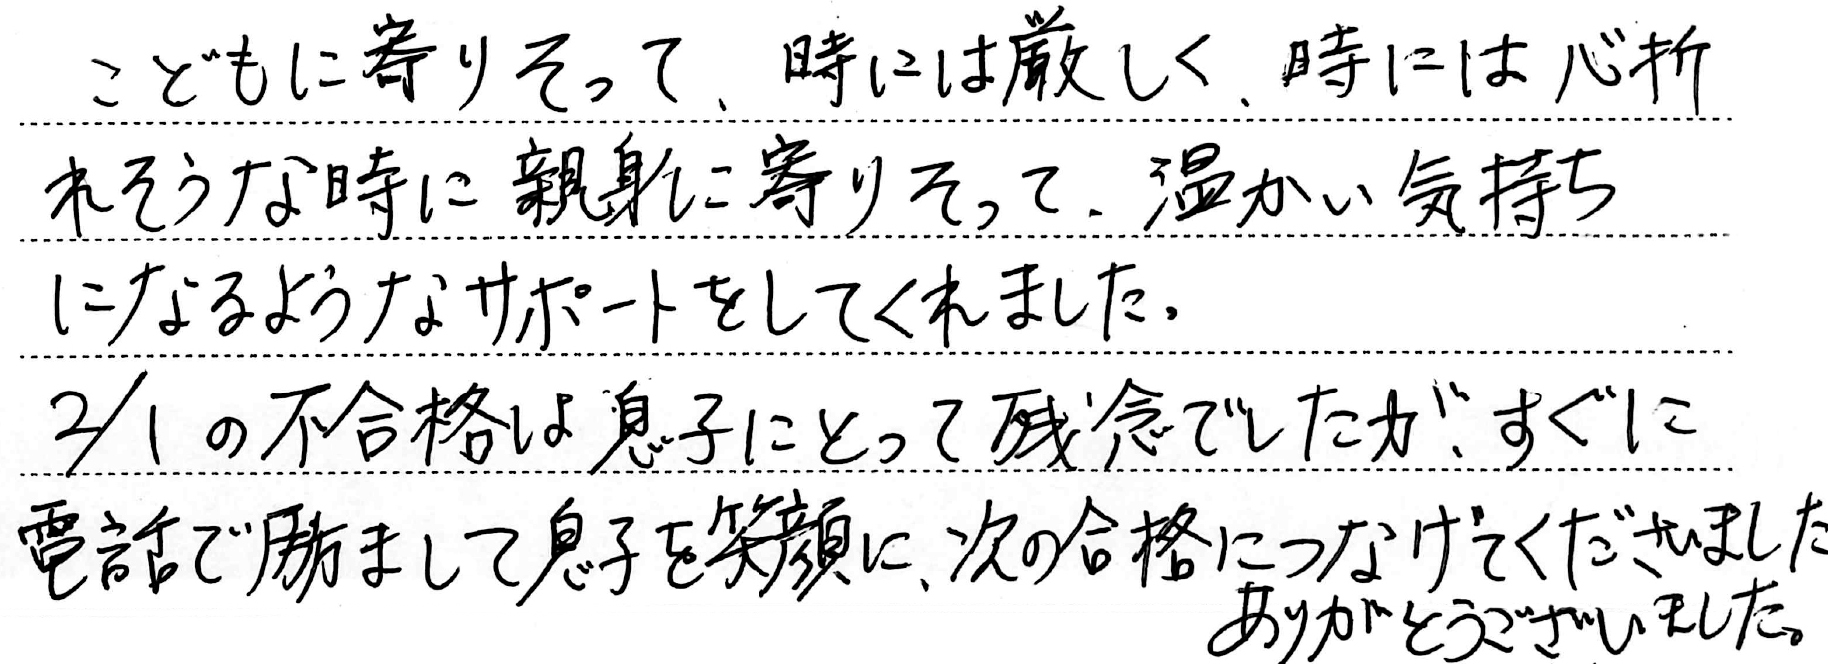 こどもに寄りそって、時には厳しく、時には心折
れそうな時に親身に寄りそって、温かい気持ち
になるようなサポートをしてくれました。
2/1の不合格は息子にとって残念でしたが、すぐに
電話で励まして息子を笑顔に、次の合格につなげてくださいました
ありがとうございました。